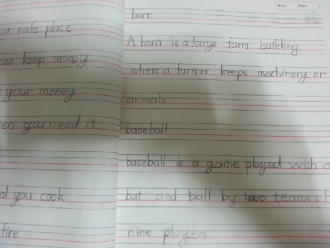 a safe place
can keep money
your money
you need it
you cook
fire
barn
A barn is a large farm building
where a farmer keeps machinery or
animals
baseball
baseball is a game played with a
bat and ball by two teams of
nine players